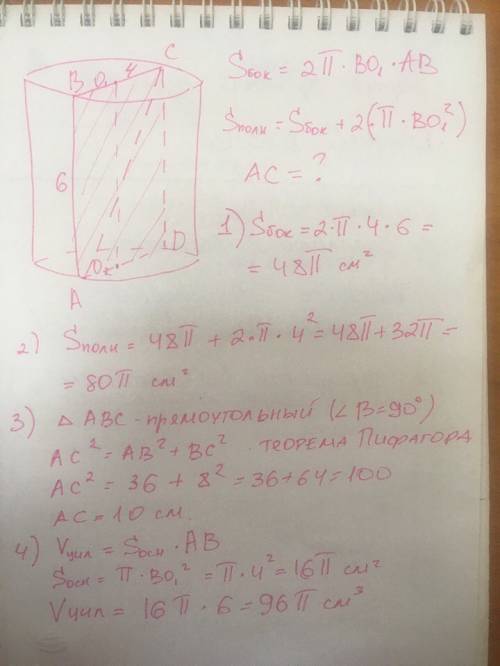 C
B O₁ 4
6
O₂ D
A
Sбок = 2π · BO₁ · AB
Sполн = Sбок + 2(π · BO₁²)
AC = ?
1) Sбок = 2·π · 4 · 6 =
= 48π см²
2) Sполн = 48π + 2·π · 4² = 48π + 32π =
= 80π см²
3) △ ABC - прямоугольный (∠B = 90°)
AC² = AB² + BC² теорема Пифагора
AC² = 36 + 8² = 36 + 64 = 100
AC = 10 см.
4) Vцил = Sосн · AB
Sосн = π · BO₁² = π · 4² = 16π см²
Vцил = 16π · 6 = 96π см³